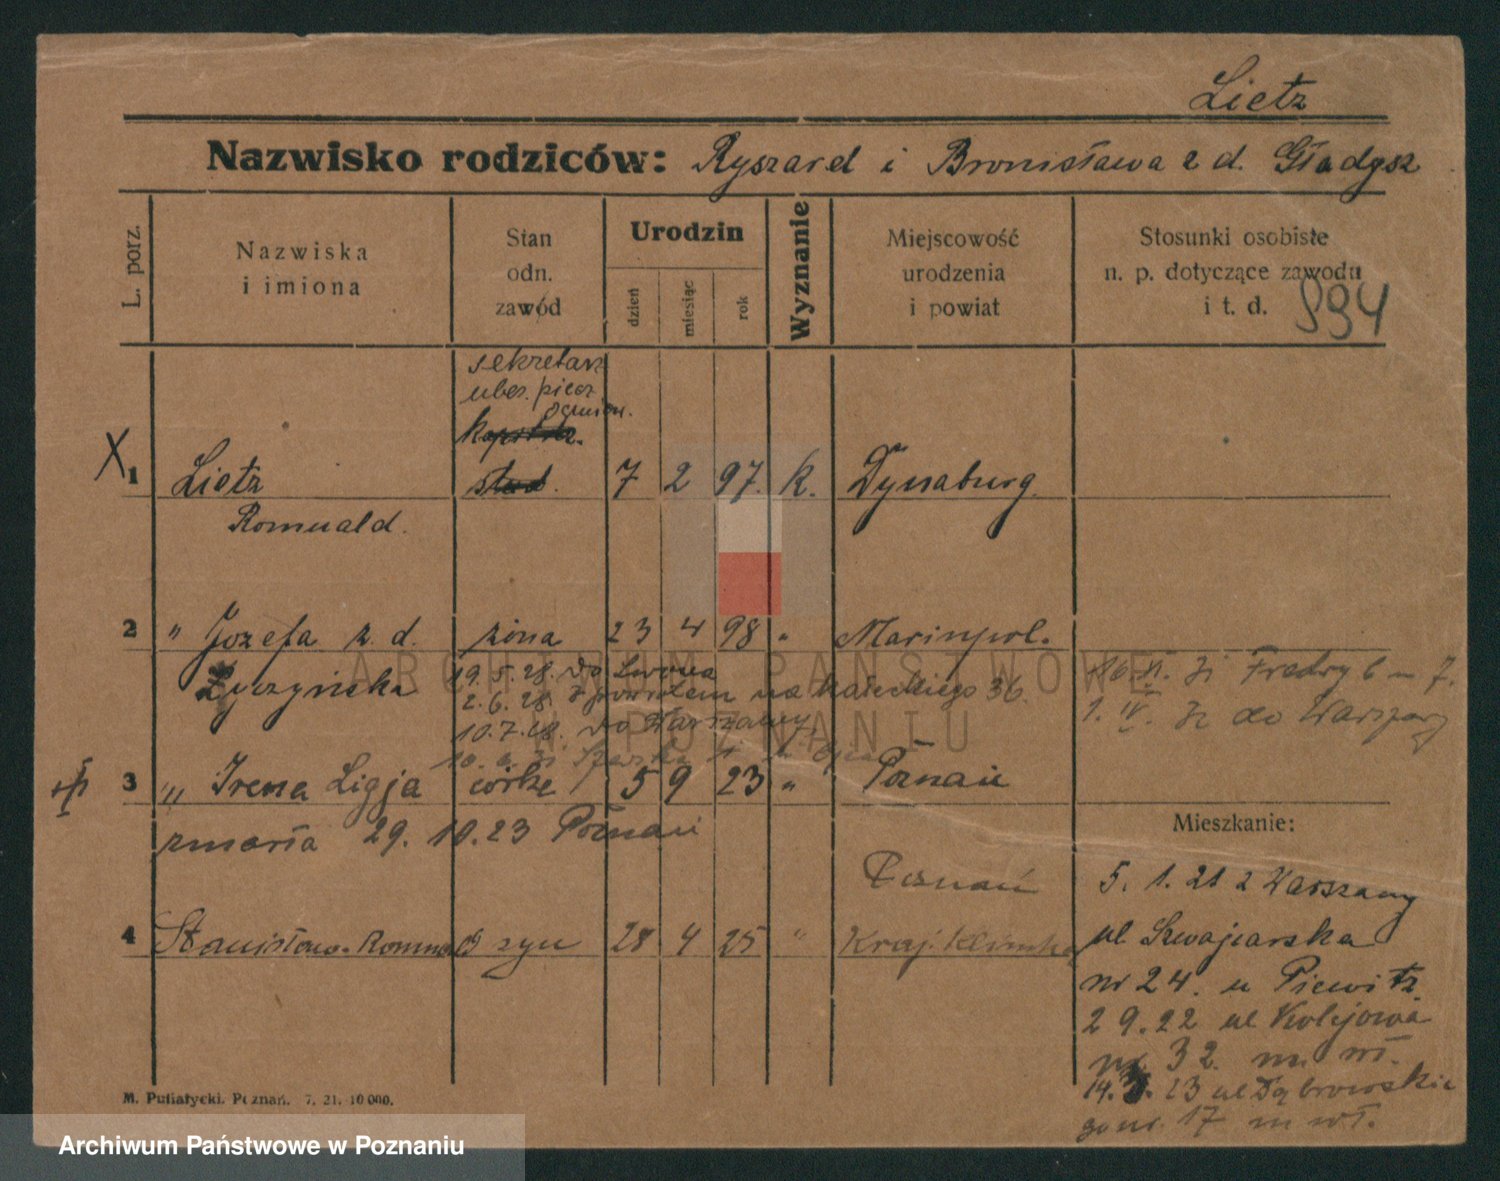 Lietz
Nazwisko rodziców: Ryszard i Bronisława z d. Gładysz
L. porz.
Nazwiska i imiona
Stan odn. zawód
Urodzin
dzień
miesiąc
rok
Wyznanie
Miejscowość urodzenia i powiat
Stosunki osobiste n. p. dotyczące zawodu i t. d.
894
sekretarz
ubez. piecz
ogniow.
X 1 Lietz stud. 7 2 97. k. Dynaburg
Romuald.
2 " Jozefa z. d. żona 23 4 98 " Marinpol.
Łyczyńska
19. 5. 28. do Lwowa
2. 6. 28. z powrotem na Małeckiego 36.
10. 7. 28. do Warszawy
16. VI. 31 Fredry 6 m 7.
1. IV. 32 do Warszawy
3 " Irena Ligja córka 5 9 23 " Poznań
zmarła 29. 10. 23 Poznań
Mieszkanie:
Poznań
4 Stanisław-Romuald syn 28 4 25 " Kraj. Klinika
5. 1. 21 z Warszawy
ul Szwajcarska
nr 24. u Piewitz.
2 9. 22 ul Kolejowa
nr. 32. m. wł.
14. 3. 23 ul Dąbrowskie
go nr. 17 m wł.
M. Putiatycki. Poznań. 7. 21. 10 000.
ARCHIWUM PAŃSTWOWE
W POZNANIU
Archiwum Państwowe w Poznaniu